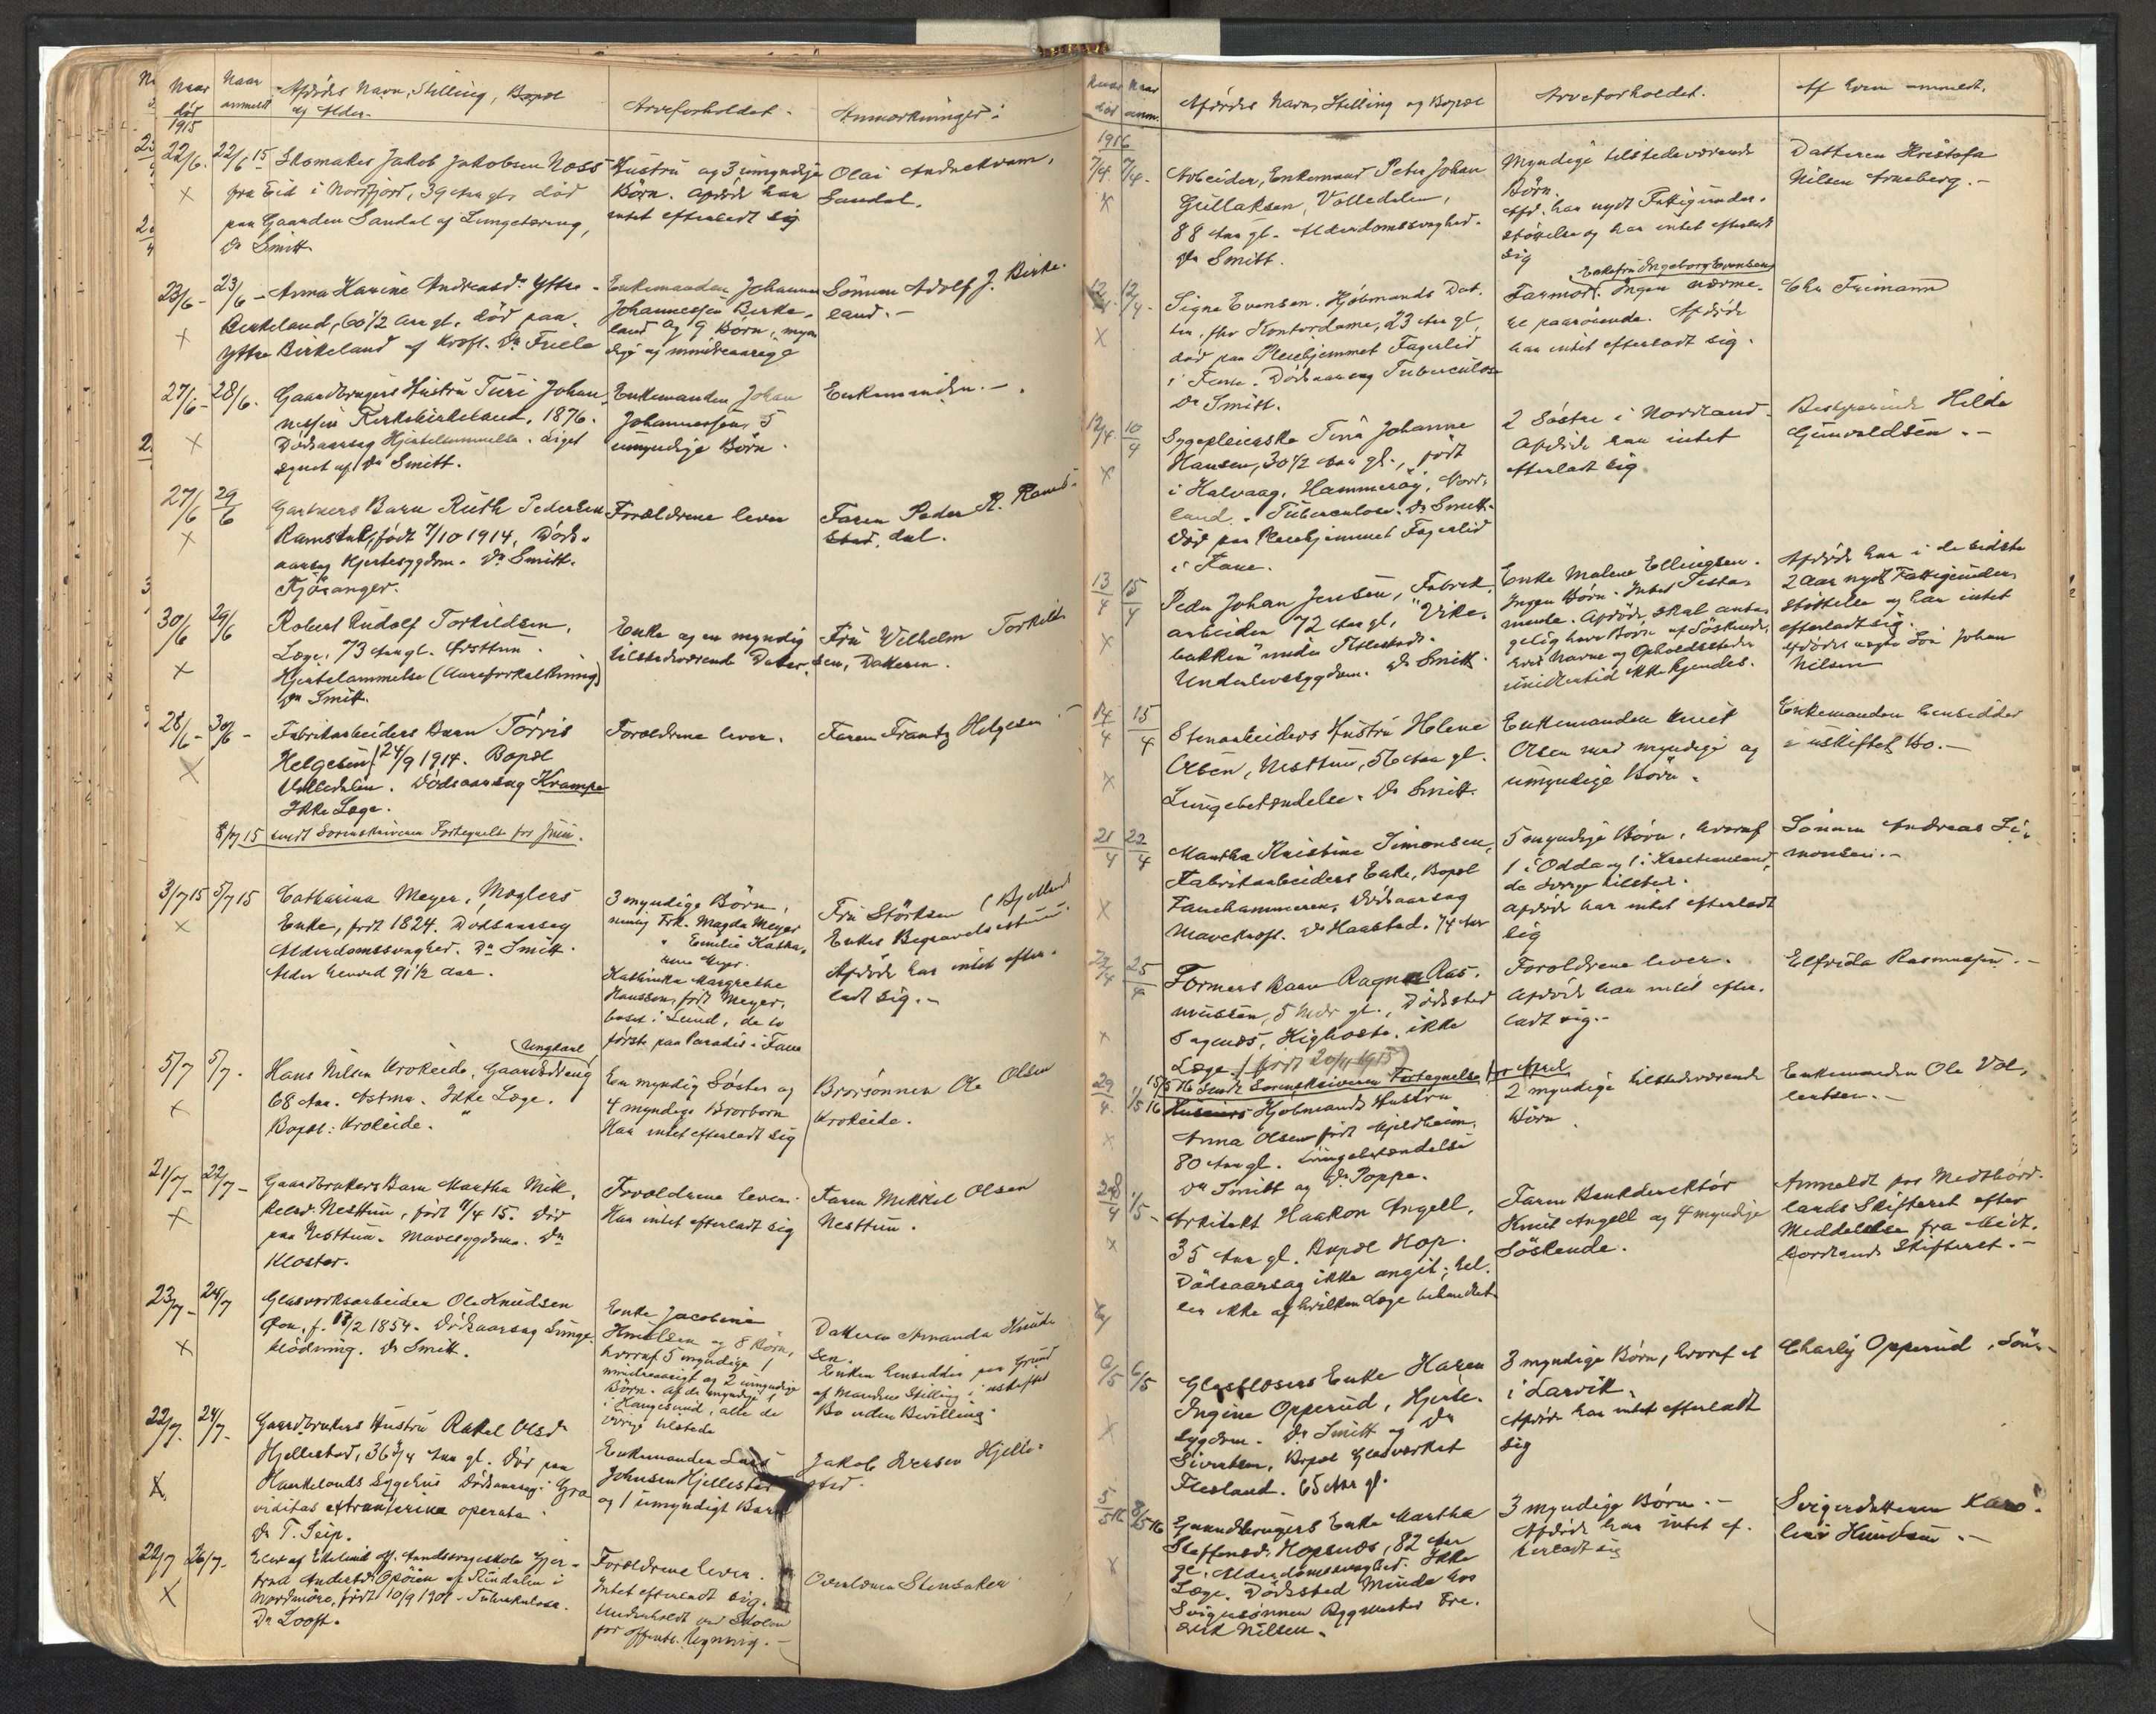 Naar
død
1915
Naar
anmeldt
Afdødes Navn, Stilling, Bopæl
og Alder.
Arveforholdet.
Anmærkninger.
22/6.
22/6 15
Skomaker Jakob Jakobsen Næss
fra Eid i Nordfjord, 39 Aar gl., død
paa Gaarden Sandal af Lungetæring,
Dr Smitt
Hustru og 3 umyndige
Børn. Afdøde har
intet efterladt sig
Olai
Sandal.
23/6 -
23/6 -
Anna Karine Andreasdr Ytre
Birkeland, 60 1/2 Aar gl. død paa
Ytre Birkeland af Kræft. Dr Friele
Enkemanden Johannes
Johannessen Birke-
land og 9 Børn, myn
dige og mindreaarige
Sønnen Adolf J. Birke-
land. -
27/6 -
28/6.
Gaardbrugers Hustru Turi Johan-
nessen Kirkebirkeland, 1876.
Dødsaarsag Hjertelammelse. Liget
synet af Dr Smitt.
Enkemanden Johan
Johannessen, 5
umyndige Børn.
Enkemanden. -
27/6
29/6
Gartners Barn Ruth Pedersen
Ramsdal, født 7/10 1914, Døds-
aarsag Hjertesygdom. Dr Smitt.
Fjøsanger.
Forældrene lever
Faren Peder R. Rams-
dal.
30/6
29/6
Robert Rudolf Torkildsen,
Læge, 73 Aar gl. Nesttun.
Hjertelammelse (Aareforkalkning)
Dr Smitt.
Enke og en myndig
tilstedeværende Datter
Fru Wilhelm Torkild-
sen, Datteren.
28/6 -
30/6 -
Fabrikarbeiders Barn Torvis
Helgesen f. 24/9 1914. Bopæl
Volledalen. Dødsaarsag Krampe
Ikke Læge.
Forældrene lever.
Faren Frantz Helgesen
8/7 15 sendt Sorenskriveren Fortegnelse for Juni.
3/7 15
5/7 15
Catharina Meyer, Mæglers
Enke, født 1824. Dødsaarsag
Alderdomssvaghed. Dr Smitt.
Alder henved 91 1/2 Aar.
3 myndige Børn,
nemlig Frk. Magda Meyer
" Emilie Katha-
rine Meyer.
Kathinka Margrethe
Hanssen, født Meyer,
bosat i Lund, de to
første paa Paradis i Fane
Fru Störksen (Bjelland
Enkes Begravelsesbureau
Afdøde har intet efter-
ladt sig. -
5/7
5/7.
Hans Nilsen Krokeide, Gaardsdreng
(Ungkarl
68 Aar. Astma. Ikke Læge.
Bopæl: Krokeide.
En myndig Søster og
4 myndige Brorbørn
Har intet efterladt sig
Brorsønnen Ole Olsen
Krokeide.
21/7 -
22/7 -
Gaardbrukers Barn Martha Mik-
kelsd. Nesttun, født 11/4 15. Død
paa Nesttun. Mavesygdom. Dr
Kloster.
Forældrene lever.
Har intet efterladt sig
Faren Mikkel Olsen
Nesttun.
23/7 -
24/7
Glasværksarbeider Ole Knudsen
Øen, f. 18/2 1854. Dødsaarsag Lunge-
blødning. Dr Smitt.
Enke Jacobine
Knudsen og 8 Børn,
hvoraf 5 myndige 1
mindreaarigt og 2 umyndige
Børn. Af de myndige 1
i Haugesund, alle de
øvrige tilstede
Datteren Amanda Knud-
sen.
Enken hensidder paa Grund
af Mandens Stilling i uskiftet
Bo uden Bevilling.
22/7.
24/7.
Gaardbrukers Hustru Rakel Olsd
Hjellestad, 36 3/4 Aar gl. Død paa
Haukelands Sygehus Dødsaarsag: Gra
viditas extrauterina operata
Dr T. Seip.
Enkemanden Lars
Johnsen Hjellestad
og 1 umyndigt Barn
Jakob Iversen Hjelle-
stad.
22/7
26/7 -
Elev af off. Aandssvageskole Gjer-
trud Andersdr Opøien af Rindalen i
Nordmøre, født 10/9 1901 - Tuberkulose.
Dr Looft.
Forældrene lever.
Intet efterladt sig.
Underholdt ved Skolen
for offentl. Regning. -
Overlærer Stensaker
Naar
død
Naar
anm.
Afdødes Navn, Stilling og Bopæl
Arveforholdet.
Af hvem anmeldt.
1916
7/4.
7/4.
Arbeider, Enkemand Peter Johan
Gullaksen, Volledalen,
88 Aar gl. Alderdomssvaghed.
Dr Smitt.
Myndige tilstedeværende
Børn.
Afd. har nydt Fattigunder-
støttelse og har intet efterladt
sig
Datteren Kristofa
Nilsen Arneberg. -
12/4.
12/4.
Signe Evensen. Kjøbmands Dat-
ter, fhv Kontordame, 23 Aar gl,
død paa Pleiehjemmet Fagerlid
i Fane. Dødsaarsag Tuberculose
Dr Smitt.
Enkefru Ingeborg Evensen
Farmor. Ingen nærme-
re paarørende. Afdøde
har intet efterladt sig.
Chr Frimann
12/4.
10/4
Sygepleierske Tina Johanne
Hansen, 30 1/2 Aar gl., født
i Kalvaag, Hammerøy, Nord-
land. - Tuberculose. Dr Smitt.
Død paa Pleiehjemmet Fagerlid
i Fane.
2 Søstre i Nordland.
Afdøde har intet
efterladt sig
Bestyrerinde Hilda
Gunvaldsen. -
13/4
15/4
Peder Johan Jensen, Fabrik-
arbeider 72 Aar gl, "Vike-
bakken" under
Underlivssygdom. Dr Smitt.
Enke Malene Ellingsen.
Ingen Børn. Intet Testa-
mente. Afdøde skal antas
gelig have Børn af Søskende,
hvis Navne og Opholdssteder
imidlertid ikke kjendes.
Afdøde har i de sidste
2 Aar nydt Fattigunder-
støttelse og har intet
efterladt sig.
Afdødes Søn Johan
Nilsen
14/4
15/4
Stenarbeiders Hustru Helene
Olsen, Nesttun, 56 Aar gl.
Lungebetændelse. Dr Smitt.
Enkemanden Knut
Olsen med myndige og
umyndige Børn.
Enkemanden hensidder
i uskiftet Bo. -
21/4
22/4
Martha Kristine Simonsen,
Fabrikarbeiders Enke, Bopæl
Fanehammeren, Dødsaarsag
Mavekræft. Dr Haastad. 74 Aar
5 myndige Børn, hvoraf
1 i Odda og 1 i Kristiansand,
de øvrige tilsted.
Afdøde har intet efterladt
sig
Sønnen Andreas Si-
monsen. -
25/4
Formers Barn Ragna Ras-
mussen, 5 Mdr gl., Dødssted
Kighoste. ikke
Læge. (født 20/11 1915)
Forældrene lever.
Afdøde har intet efter-
ladt sig. -
Elfrida Rasmussen. -
15/5 16 Sendt Sorenskriveren Fortegnelse for April
29/4
1/5 16
Kjøbmands Hustru
Anna Olsen født Mjeldheim,
80 Aar gl. Lungebetændelse
Dr Smitt og Dr Poppe.
2 myndige tilstedeværende
Børn.
Enkemanden Ole Vol-
lentsen. -
28/4
1/5 -
Arkitekt Haakon Angell,
35 Aar gl. Bopæl Hop.
Dødsaarsag ikke angit; hel-
ler ikke af hvilken Læge behandlet
Faren Bankdirektør
Knut Angell og 4 myndige
Søskende.
Anmeldt fra Midthord-
lands Skifteret efter
Meddelelse fra Midt-
hordlands Skifteret. -
6/5
6/5
Glasblæsers Enke Karen
Ingine Opperud, Hjerte-
sygdom. Dr Smitt og Dr
Sivertsen, Bopæl Glasværket
Flesland. 65 Aar gl.
3 myndige Børn, hvoraf et
i Larvik.
Afdøde har intet efterladt
sig
Charly Opperud, Søn. -
5/5 16
8/5 16
Gaardbrugers Enke Martha
Steffensdr Hopsnes, 82 Aar
gl. Alderdomssvaghed. Ikke
Læge. Dødssted Minde hos
Svigersønnen Bygmester Fre-
drik Nilsen.
3 myndige Børn. -
Afdøde har intet ef-
terladt sig
Svigerdatteren Karo-
line Knudsen. -